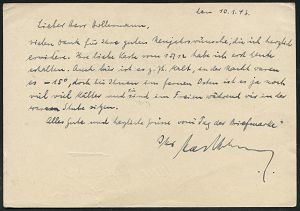 den 10.1.43.
Lieber Herr
vielen Dank für Ihre guten Neujahrswünsche, die ich herzlich
erwidere. Ihre liebe Karte vom habe ich erst heute
erhalten. Auch hier ist es z. Zt. kalt, in der Nacht waren
es -15°, doch bei Ihnen im fernen Osten ist es ja noch
viel viel kälter und Sie sind im Freien während wir in der
Stube sitzen.
Alles Gute und herzliche Grüsse vom "Tag der Briefmarke"
Ihr